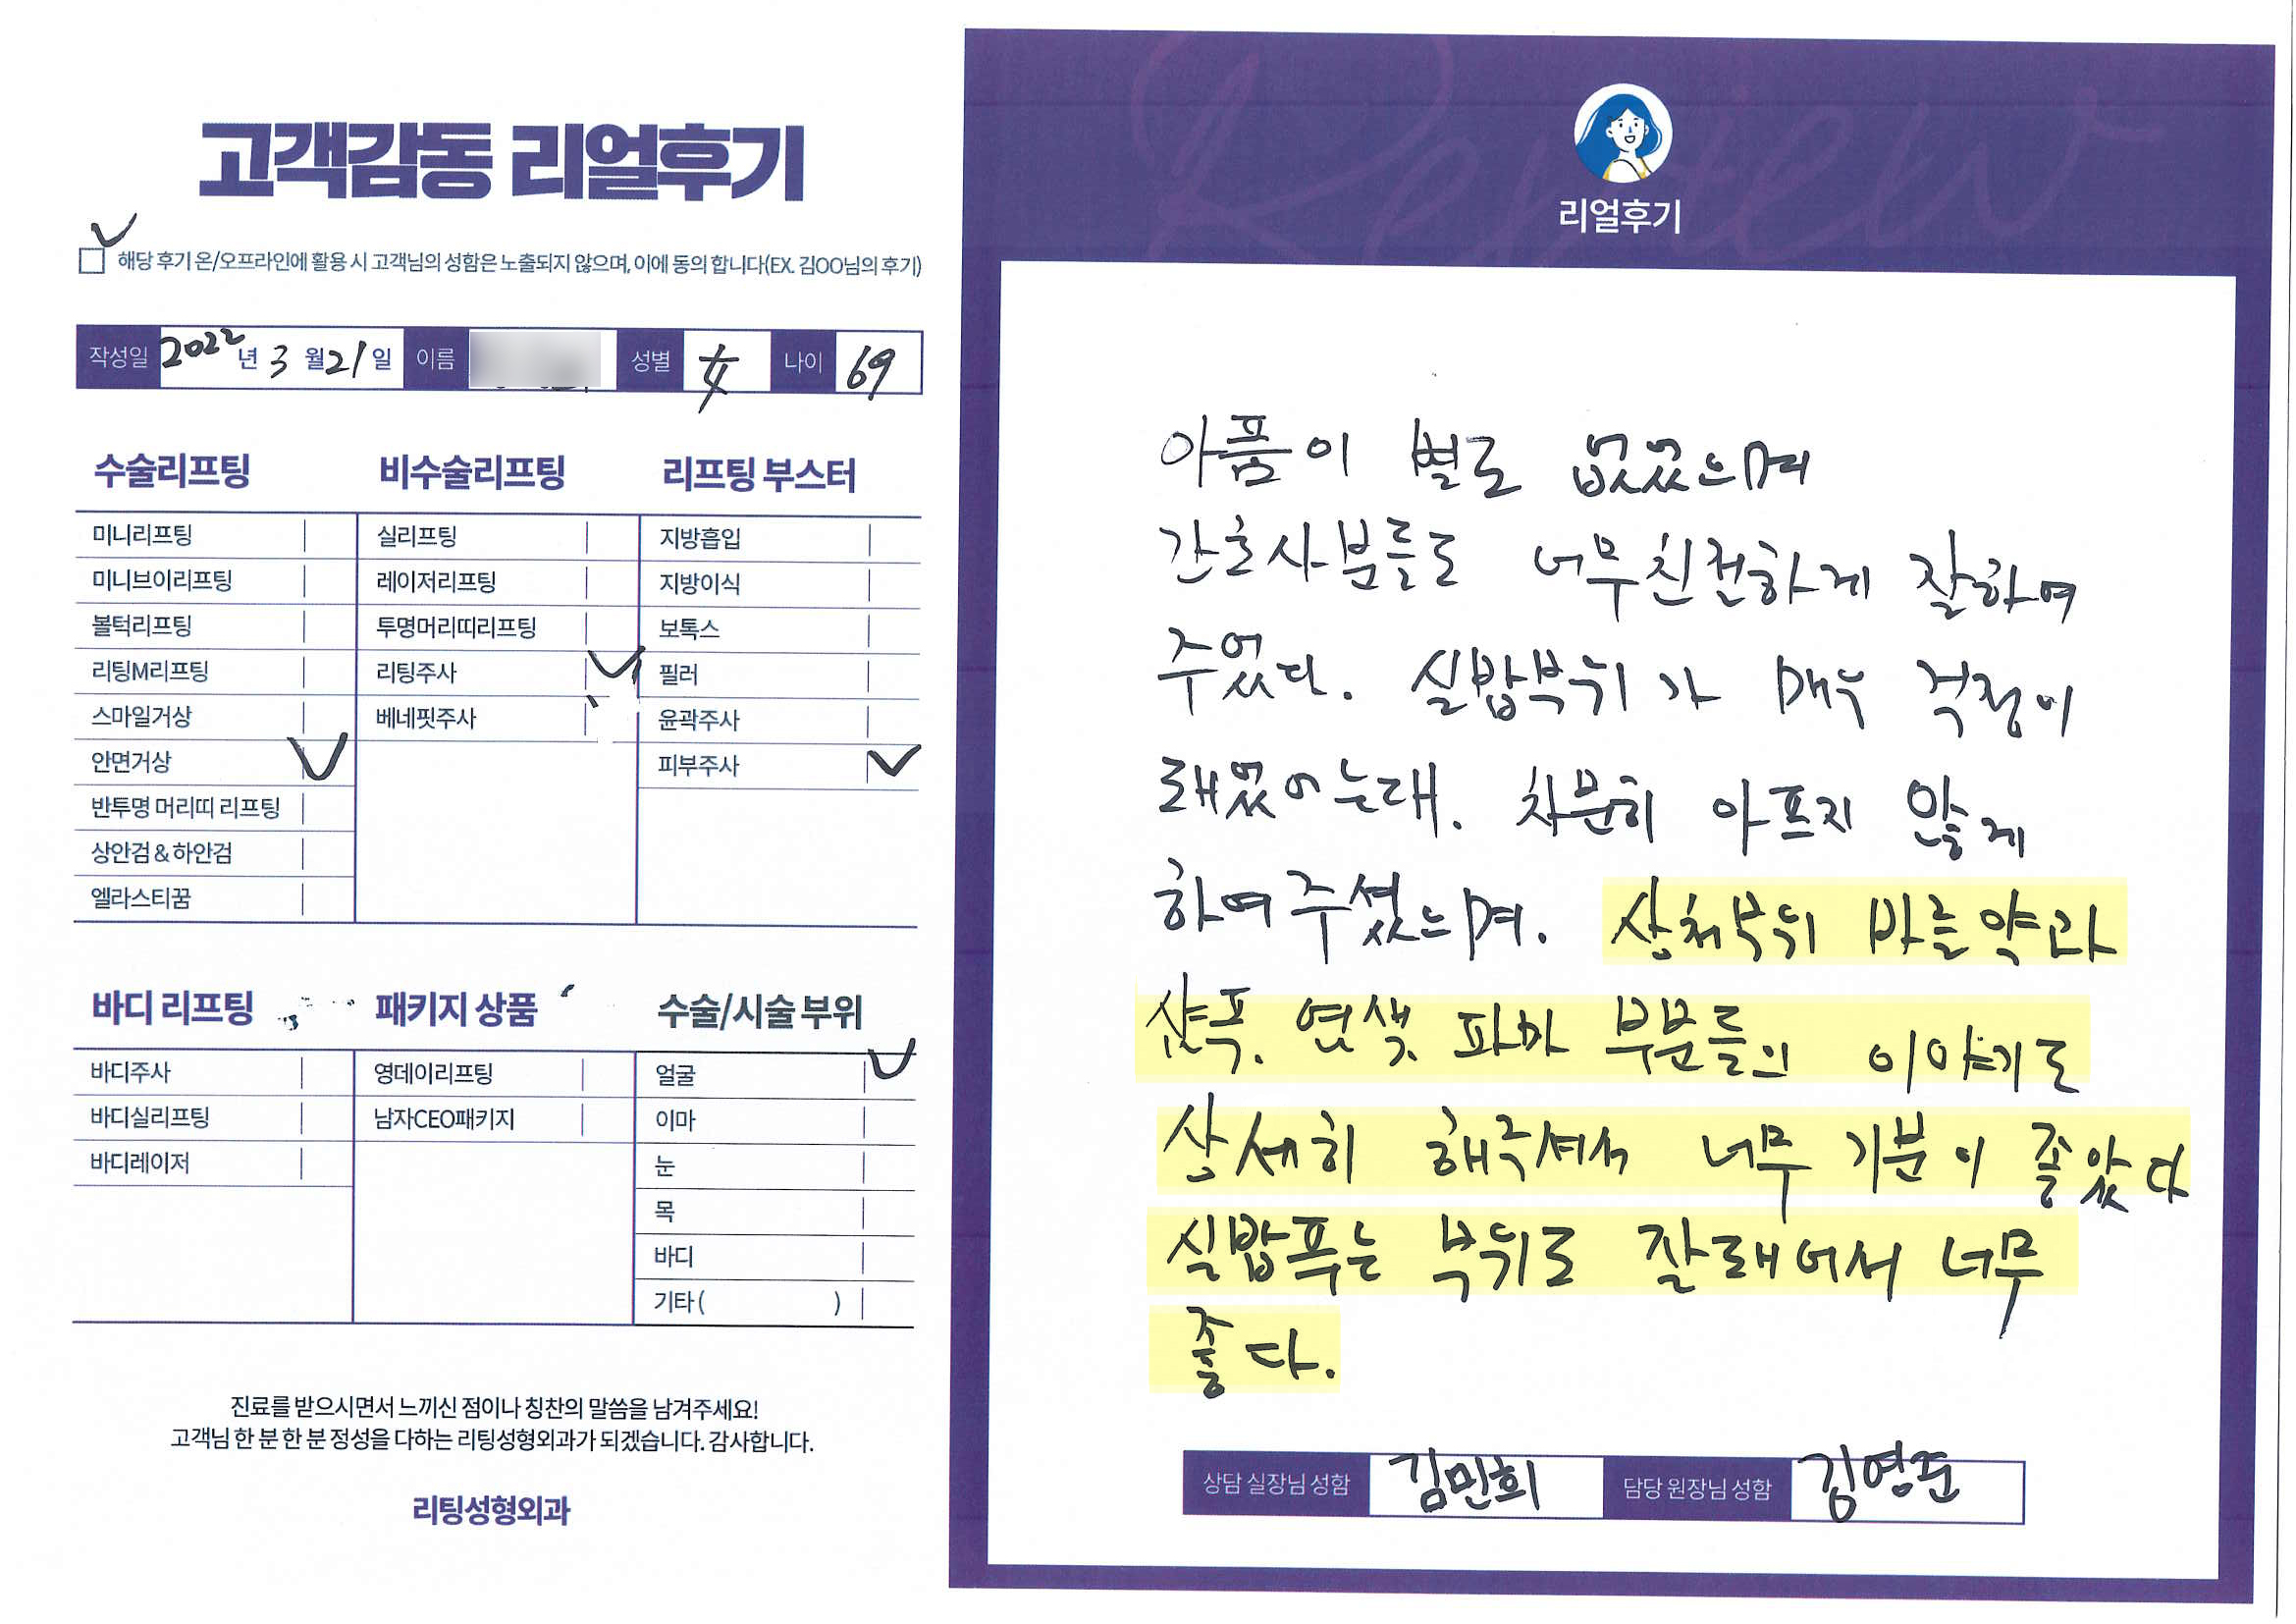 고객감동 리얼후기
해당 후기 온/오프라인에 활용 시 고객님의 성함은 노출되지 않으며, 이에 동의 합니다(EX. 김OO님의 후기)
작성일 2022년 3월 21일 이름 성별 女 나이 69
수술리프팅
미니리프팅
미니브이리프팅
볼턱리프팅
리팅M리프팅
스마일거상
안면거상
반투명 머리띠 리프팅
상안검 & 하안검
엘라스티꿈
비수술리프팅
실리프팅
레이저리프팅
투명머리띠리프팅
리팅주사
베네핏주사
리프팅 부스터
지방흡입
지방이식
보톡스
필러
윤곽주사
피부주사
바디 리프팅
바디주사
바디실리프팅
바디레이저
패키지 상품
영데이리프팅
남자CEO패키지
수술/시술 부위
얼굴
이마
눈
목
바디
기타 ( )
진료를 받으시면서 느끼신 점이나 칭찬의 말씀을 남겨주세요!
고객님 한 분 한 분 정성을 다하는 리팅성형외과가 되겠습니다. 감사합니다.
리팅성형외과
Review
리얼후기
아픔이 별로 없었으며
간호사분들도 너무친절하게 잘하여
주었다. 실밥부위가 매우 걱정이
래었어는대. 차분히 아프지 않게
하여주셨으며. 상처부위 바를약과
샴푸. 염색, 파마 부분들의 이야기도
상세히 해주셔서 너무 기분이 좋았다
실밥푸는 부위도 잘래어서 너무
좋다.
상담 실장님 성함 김민희 담당 원장님 성함 김영준